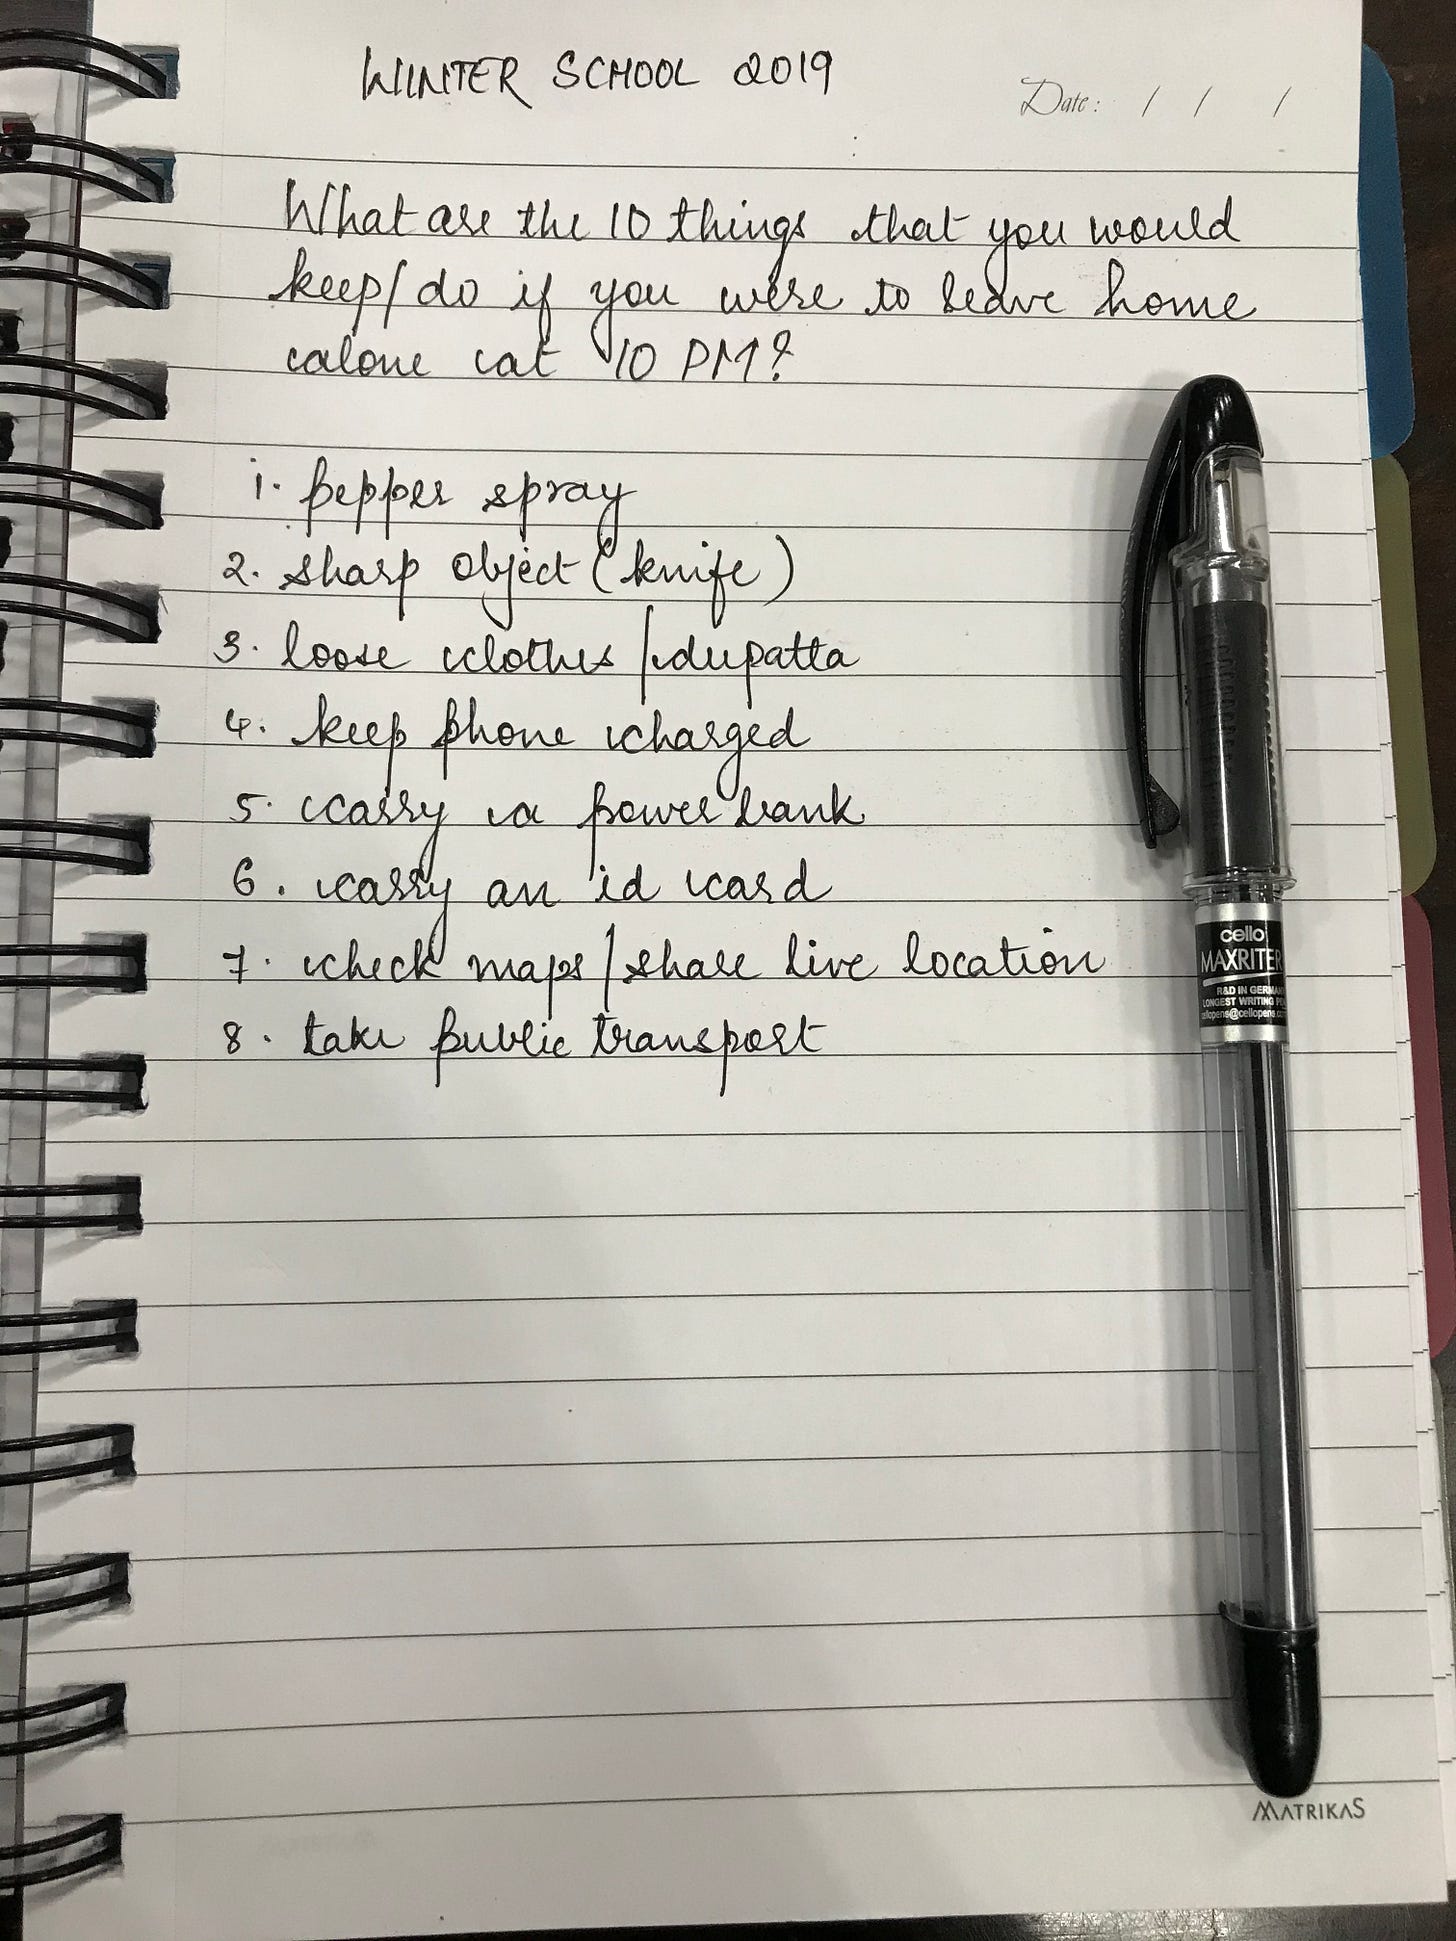 WINTER SCHOOL 2019
Date: / / /
What are the 10 things that you would
keep/do if you were to leave home
alone at 10 PM?
1. pepper spray
2. sharp object (knife)
3. loose clothes/dupatta
4. keep phone charged
5. carry a power bank
6. carry an id card
7. check maps/share live location
8. take public transport
cello
MAXRITER
R&D IN GERMANY
LONGEST WRITING PEN
MATRIKAS